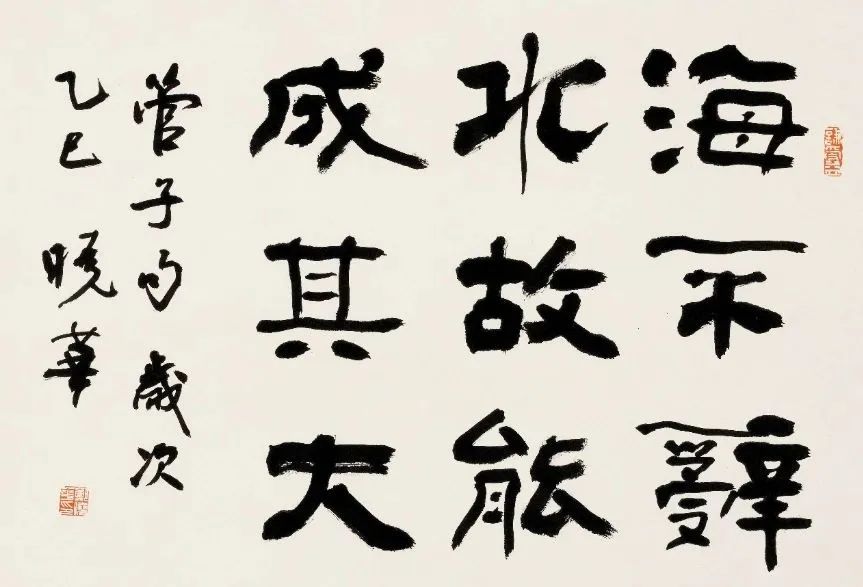 海不辭
水故能
成其大
管子句 歲次
乙巳 曉華